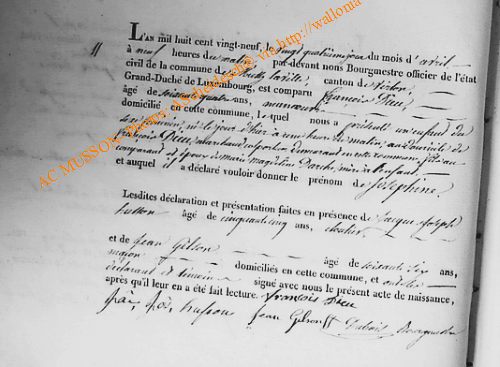 L'AN mil huit cent vingt-neuf, le vingt quatrième jour du mois d'avril
à neuf heures du matin par-devant nous Bourgmestre officier de l'état
civil de la commune de canton de Virton
Grand-Duché de Luxembourg, est comparu François Dieu,
âgé de soixante quatre ans, manoeuvre
domicilié en cette commune, lequel nous a présenté un enfant du
sexe féminin, né le jour d'hier à heure du matin, au domicile de
François Dieu, demeurant en cette commune, fils du
comparant et époux de marie magdeleine mère de l'enfant
et auquel il a déclaré vouloir donner le prénom de Joséphine.
Lesdites déclaration et présentation faites en présence de Jacque Joseph
husson âgé de cinquante cinq ans, cloutier,
et de Jean Gilson âgé de soixante six ans,
maçon domiciliés en cette commune, et ont les
déclarant et témoins signé avec nous le présent acte de naissance,
après qu'il leur en a été fait lecture. françois Dieu
husson Jean Gilson Bourgmestre
AC MUSSON, Etat-civil, Arch. de l'Etat, via http://wallonia